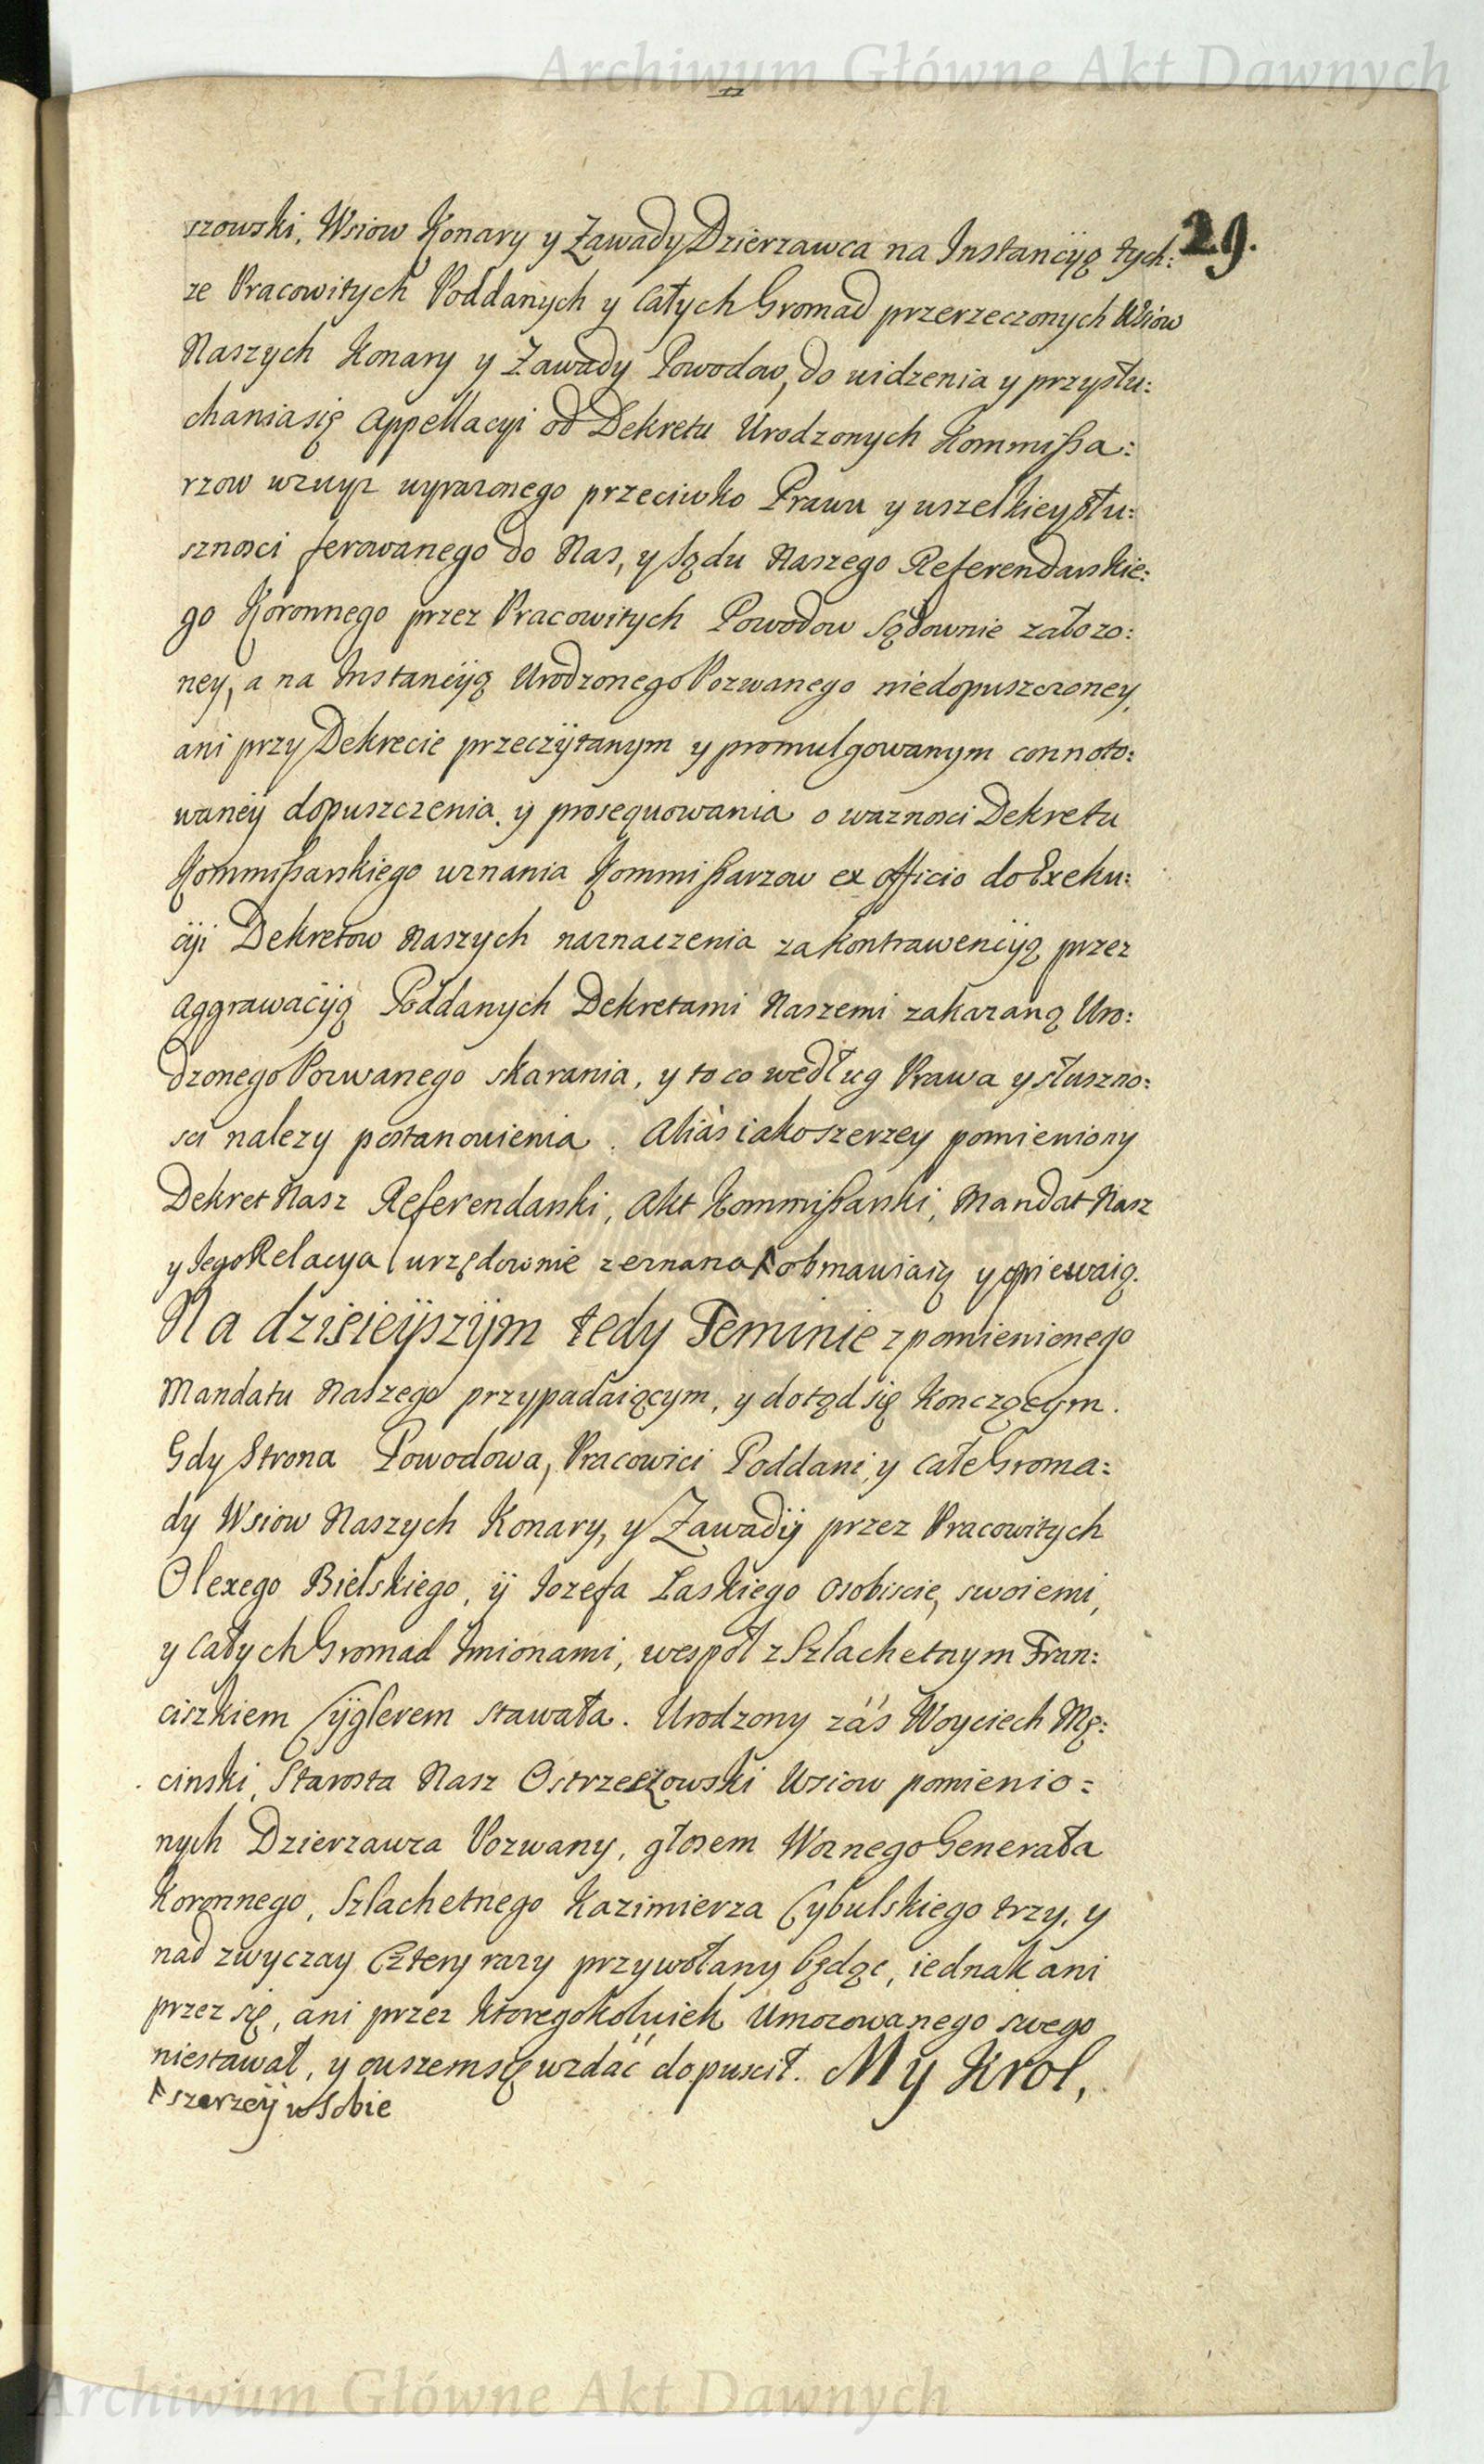 Archiwum Główne Akt Dawnych
29.
szowski, Wsiow Konary y Zawady Dzierzawca na Instancÿą tych:
ze Pracowitych Poddanych y całych Gromad przerzeczonych Wsiow
Naszych Konary y Zawady Powodow, do widzenia y przysłu:
chania się Appellacyi od Dekretu Urodzonych Kommißa:
rzow wzwyz wyrazonego przeciwko Prawu y wszelkiey słu:
sznosci ferowanego do Nas, y Sądu Naszego Referendarskie:
go Koronnego przez Pracowitych Powodow Sądownie załozo:
ney, a na Instancÿą Urodzonego Pozwanego niedopuszczoney,
ani przy Dekrecie przeczÿtanym y promulgowanym connoto:
waneÿ dopuszczenia y prosequowania o wazności Dekretu
Kommißarskiego uznania Kommißarzow ex officio do Exeku:
cÿi Dekretow Naszych naznaczenia za kontrawencÿą przez
Aggrawacÿą Poddanych Dekretami Naszemi zakazaną Uro:
dzonego Pozwanego skarania, y to co według Prawa y słuszno:
sci nalezy postanowienia. Aliàs iako szerzey pomieniony
Dekret Nasz Referendarski, Akt Kommißarski, Mandat Nasz
y Jego Relacya urzędownie zeznana ⌈ obmawiaią y opiewaią.
Na dzisieÿszÿm tedy Terminie z pomienionego
Mandatu Naszego przypadaiącym, y dotąd się konczącym.
Gdy Strona Powodowa, Pracowici Poddani, y całe Groma:
dy Wsiow Naszych Konary, y Zawadÿ przez Pracowitych
Olexego Bielskiego, ÿ Jozefa Laskiego osobiscie, swoiemi,
y całych Gromad Imionami, wespoł z Szlachetnym Fran:
ciszkiem Cÿglerem stawała. Urodzony záś Woyciech Mę:
cinski, Starosta Nasz Ostrzeszowski Wsiow pomienio:
nych Dzierzawca Pozwany, głosem Woznego Generała
Koronnego, Szlachetnego Kazimierza Cybulskiego trzy, y
nad zwyczay Cztery razy przywołany będąc, iednak ani
przez się, ani przez ktoregokolwiek Umocowanego swego
niestawał, y owszem się wzdać dopuscił. My Krol,
⌈ szerzeÿ w sobie
Archiwum Główne Akt Dawnych